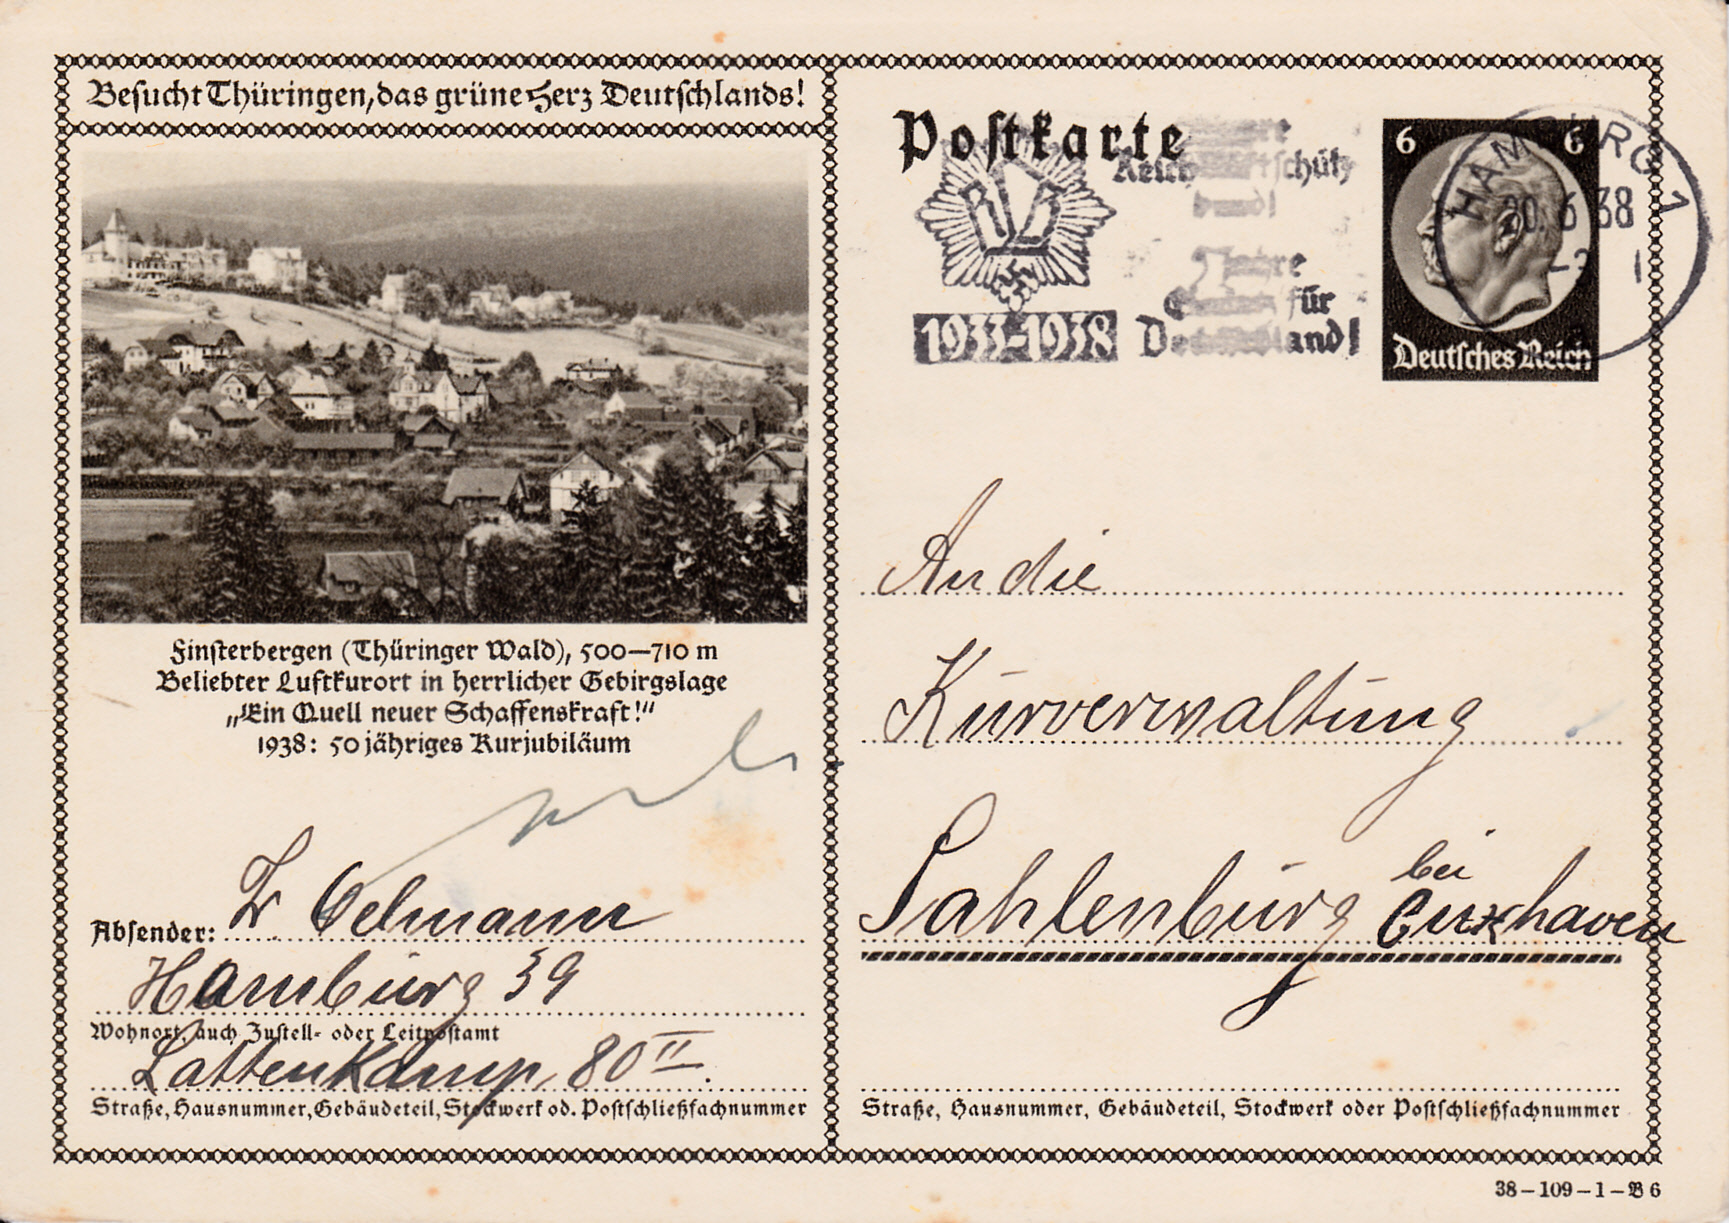 Besucht Thüringen, das grüne Herz Deutschlands!
Finsterbergen (Thüringer Wald), 500–710 m
Beliebter Luftkurort in herrlicher Gebirgslage
„Ein Quell neuer Schaffenskraft!“
1938: 50 jähriges Kurjubiläum
Absender: Oelmann
Hamburg 39
Wohnort, auch Zustell- oder Leitpostamt
Lattenkamp, 80 II.
Straße, Hausnummer, Gebäudeteil, Stockwerk od. Postschließfachnummer
Postkarte
5 Jahre
für
1933-1938
6 6
Deutsches Reich
HAMBURG 1
20.6.38
An die
Kurverwaltung
Sahlenburg bei Cuxhaven
Straße, Hausnummer, Gebäudeteil, Stockwerk oder Postschließfachnummer
38–109–1–B 6